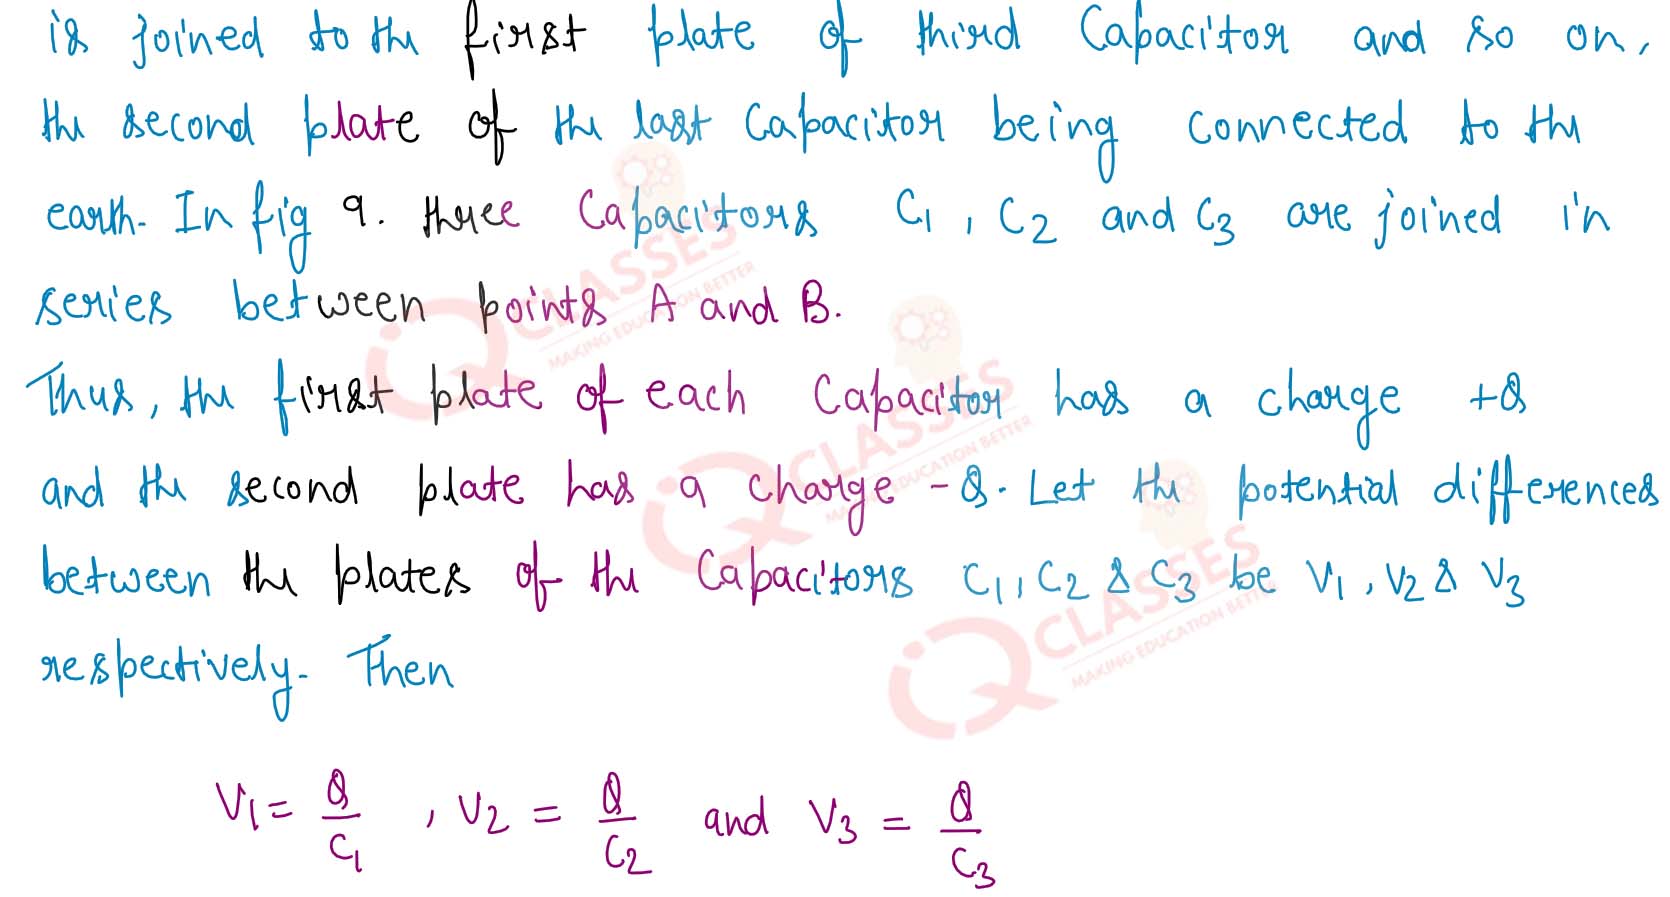 is joined to the first plate of third Capacitor and so on,
the second plate of the last Capacitor being connected to the
earth. In fig 9. three Capacitors C1, C2 and C3 are joined in
series between points A and B.
Thus, the first plate of each Capacitor has a charge +Q
and the second plate has a charge -Q. Let the potential differences
between the plates of the Capacitors C1, C2 & C3 be V1, V2 & V3
respectively. Then
V1 = Q/C1 , V2 = Q/C2 and V3 = Q/C3
iQ CLASSES
MAKING EDUCATION BETTER
iQ CLASSES
MAKING EDUCATION BETTER
iQ CLASSES
MAKING EDUCATION BETTER